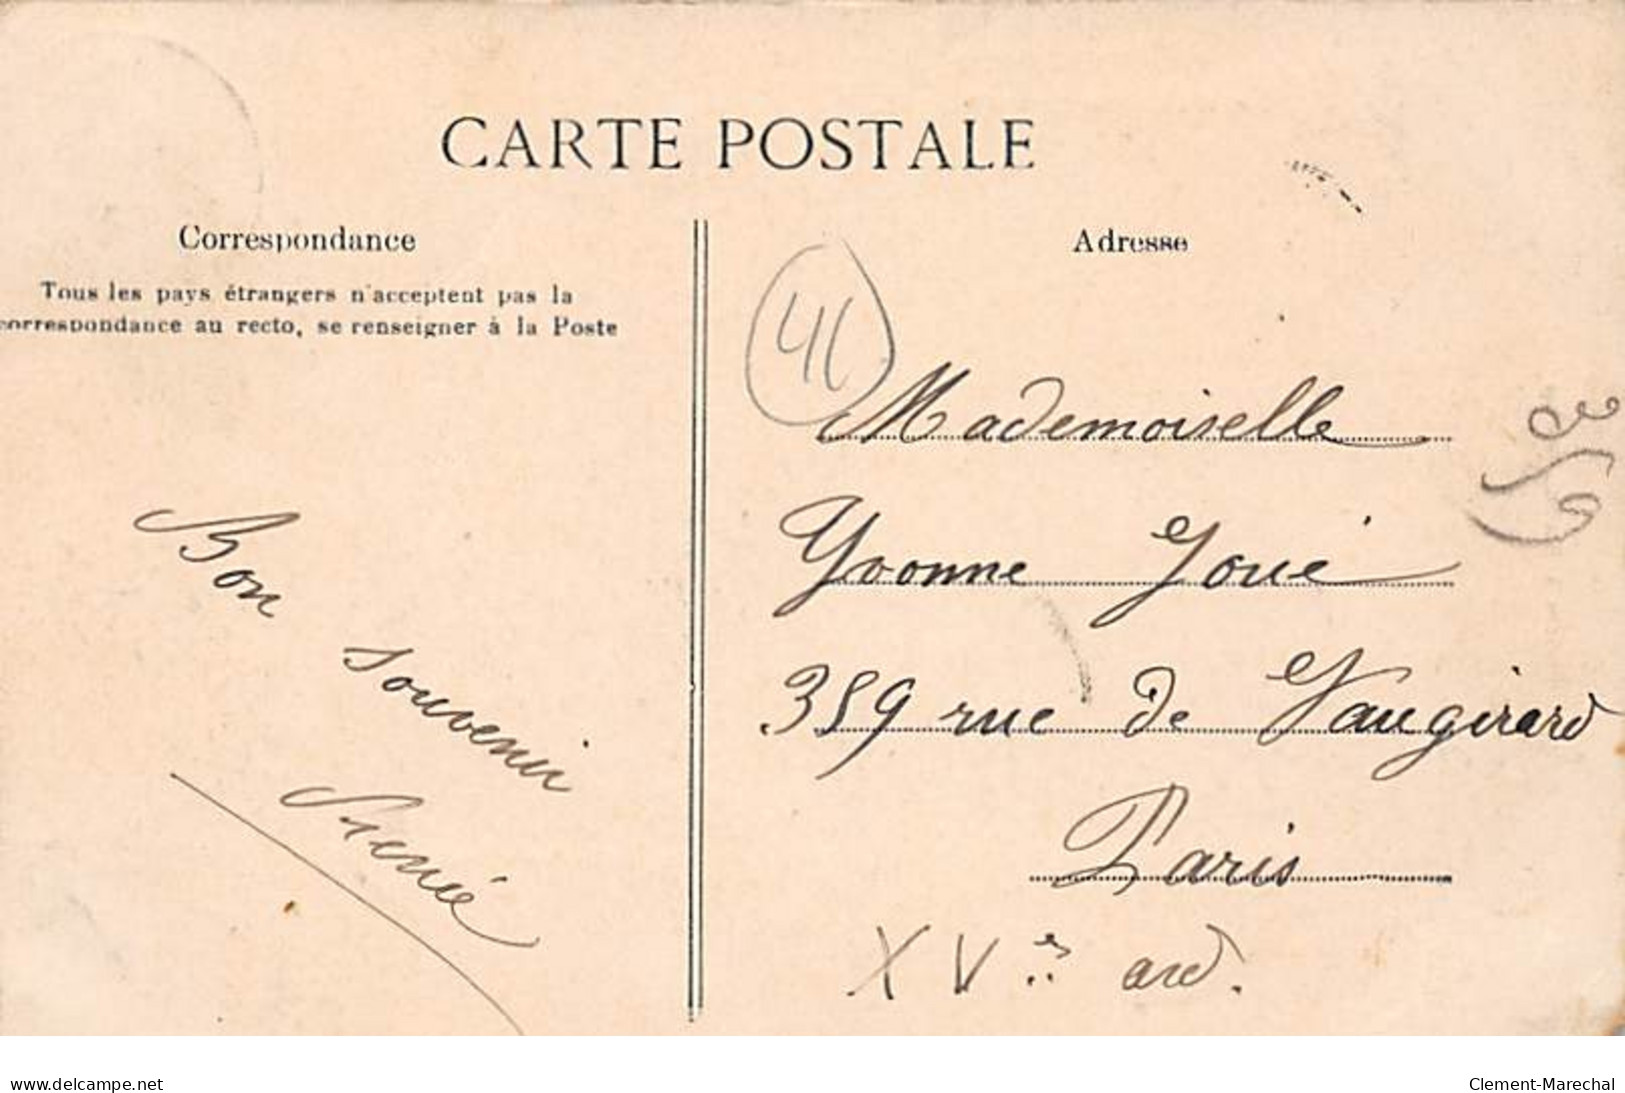 CARTE POSTALE
Correspondance
Tous les pays étrangers n'acceptent pas la
correspondance au recto, se renseigner à la Poste
Bon
souvenir
Adresse
41
Mademoiselle
Yvonne Joué
359 rue de Vaugirard
Paris
XVe ard.
www.delcampe.net
Clement-Marechal